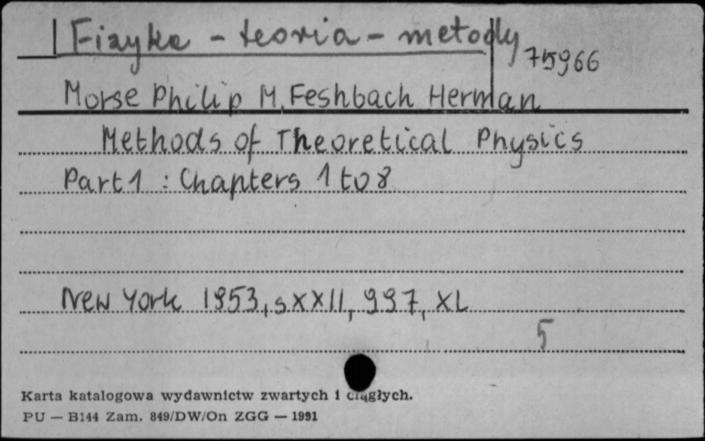 Fizyka - teoria - metody
75966
Morse Philip M, Feshbach Herman
Methods of Theoretical Physics
Part 1 : Chapters 1 to 8
New York 1953, s XXII, 997, XL
5
Karta katalogowa wydawnictw zwartych i ciągłych.
PU — B144 Zam. 849/DW/On ZGG — 1991